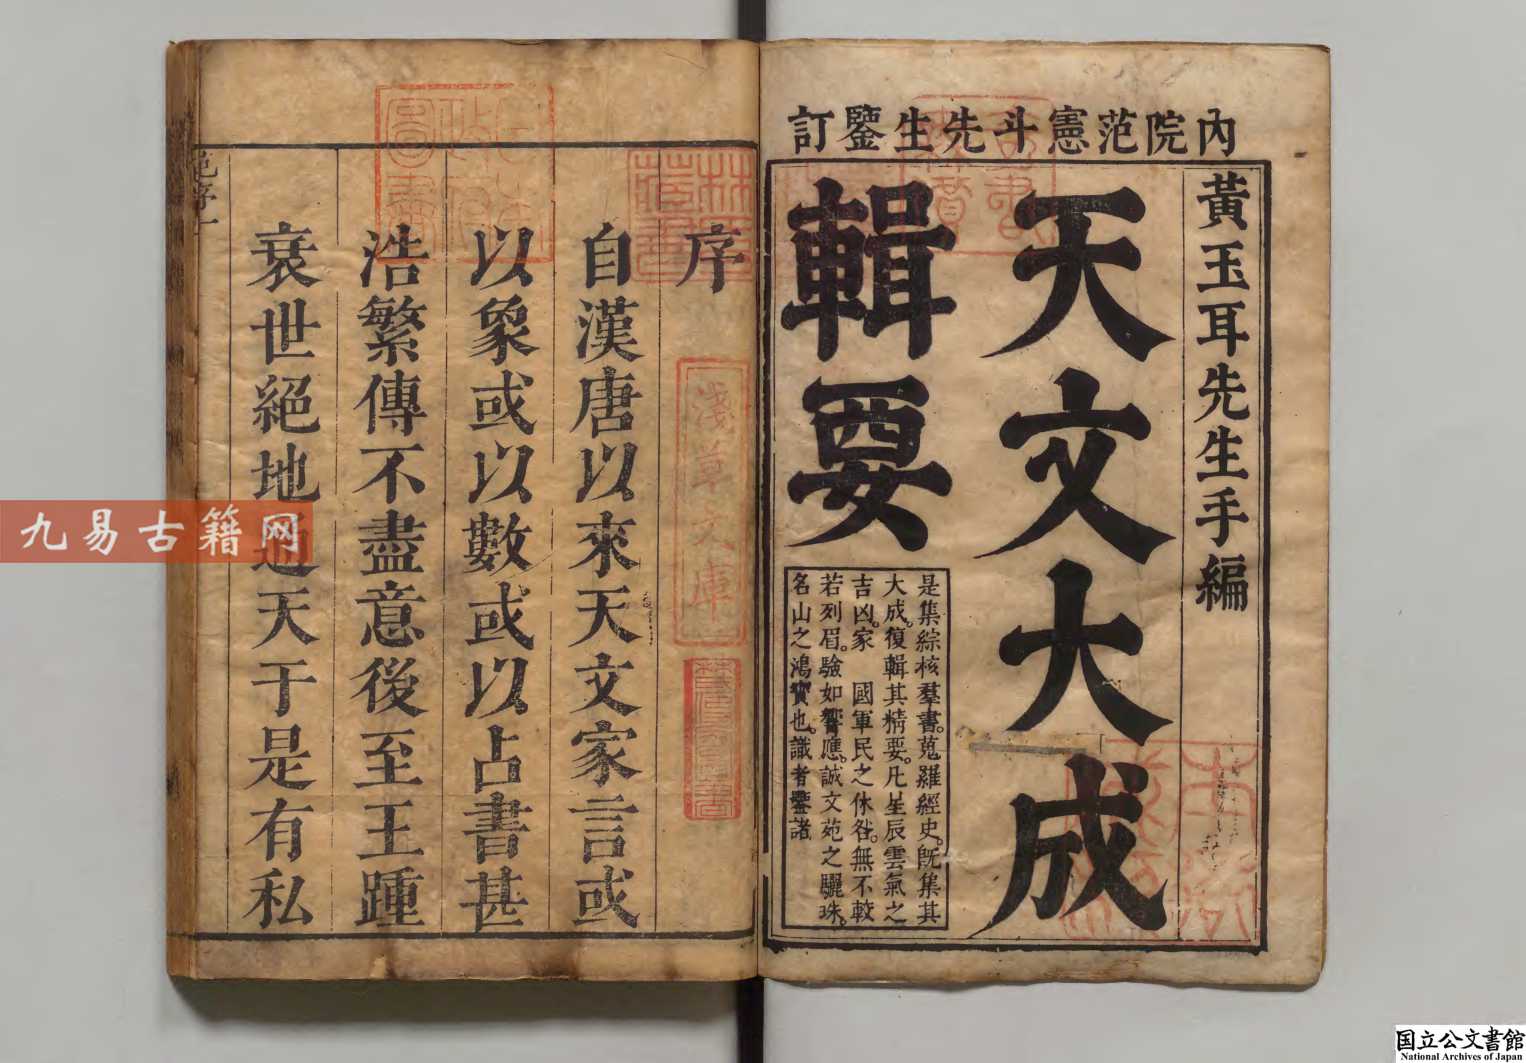 內院范憲斗先生鑒訂
黃玉耳先生手編
天文大成
輯要
是集綜核羣書。蒐羅經史。既集其
大成。復輯其精要。凡星辰雲氣之
吉凶。家　國軍民之休咎。無不較
若列眉。驗如響應。誠文苑之驪珠。
名山之鴻寶也。識者鑒諸
序
自漢唐以來天文家言或
以象或以數或以占書甚
浩繁傳不盡意後至王踵
衰世絕地通天于是有私
淺草文庫
九易古籍网
国立公文書館
National Archives of Japan